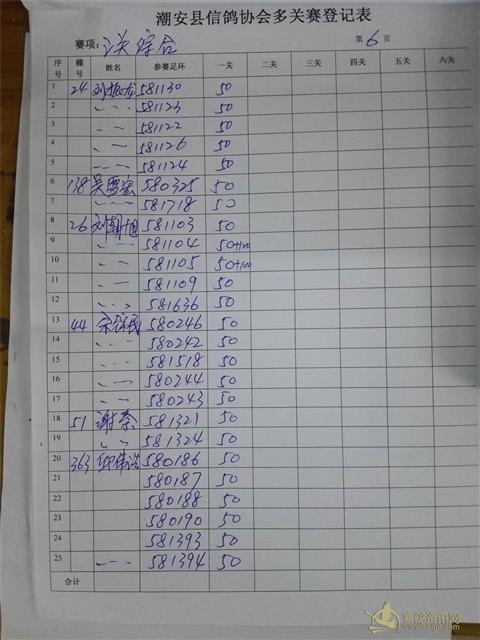 潮安县信鸽协会多关赛登记表
赛项: 三关综合 第 6 页
序号 棚号 姓名 参赛足环 一关 二关 三关 四关 五关 六关
1 24 581130 50
2 581123 50
3 581122 50
4 581126 50
5 581124 50
6 138 吴雪宏 580325 50
7 581718 50
8 26 刘朝旭 581103 50
9 581104 50+100
10 581105 50+100
11 581109 50
12 581636 50
13 44 580246 50
14 580242 50
15 581518 50
16 580244 50
17 580243 50
18 51 谢泰 581321 50
19 581324 50
20 363 580186 50
21 580187 50
22 580188 50
23 580190 50
24 581393 50
25 581394 50
合计